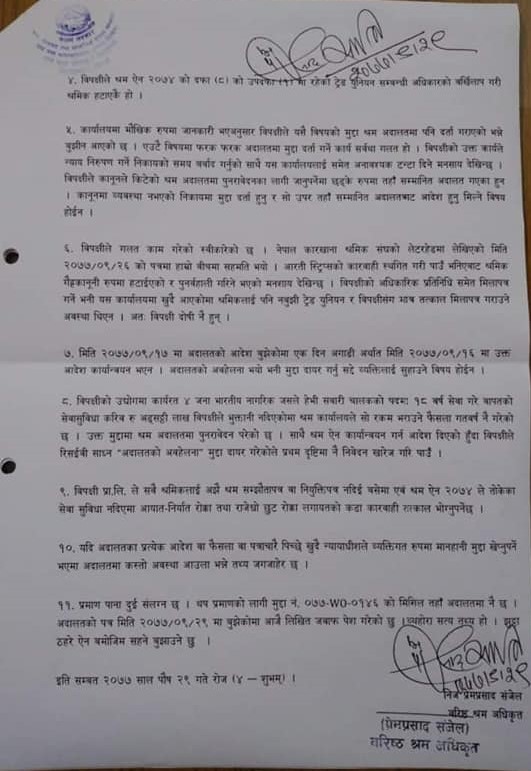 ४. विपक्षीले श्रम ऐन २०७४ को दफा (८) को उपदफा (१) मा रहेको ट्रेड युनियन सम्बन्धी अधिकारको बर्खिलाप गरी
श्रमिक हटाएकै हो ।
५. कार्यालयमा मौखिक रुपमा जानकारी भएअनुसार विपक्षीले यसै विषयको मुद्दा श्रम अदालतमा पनि दर्ता गराएको भन्ने
बुझीन आएको छ । एउटै विषयमा फरक फरक अदालतमा मुद्दा दर्ता गर्ने कार्य सर्वथा गलत हो । विपक्षीको उक्त कार्यले
न्याय निरुपण गर्ने निकायको समय बर्बाद गर्नुको साथै यस कार्यालयलाई समेत अनावश्यक टन्टा दिने मनसाय देखिन्छ ।
विपक्षीले कानूनले किटेको श्रम अदालतमा पुनरावेदनका लागी जानुपर्नेमा छड्के रुपमा तहाँ सम्मानित अदालत गएका हुन
। कानूनमा व्यवस्था नभएको निकायमा मुद्दा दर्ता हुनु र सो उपर तहाँ सम्मानित अदालतबाट आदेश हुनु मिल्ने विषय
होईन ।
६. विपक्षीले गलत काम गरेको स्वीकारेको छ । नेपाल कारखाना श्रमिक संघको लेटरहेडमा लेखिएको मिति
२०७७/०९/२६ को पत्रमा हाम्रो बीचमा सहमति भयो । आरती स्ट्रिप्सको कारवाही स्थगित गरी पाउँ भनिएबाट श्रमिक
गैह्रकानूनी रुपमा हटाईएको र पुनर्वहाली गरिने भएको मनशाय देखिन्छ । विपक्षीको अधिकारिक प्रतिनिधि समेत मिलापत्र
गर्ने भनी यस कार्यालयमा खुदै आएकोमा श्रमिकलाई पनि नबुझी ट्रेड युनियन र विपक्षीसंग मात्र तत्काल मिलापत्र गराउने
अवस्था थिएन । अतः विपक्षी दोषी नै हुन् ।
७. मिति २०७७/०९/१७ मा अदालतको आदेश बुझेकोमा एक दिन अगाडी अर्थात मिति २०७७/०९/१६ मा उक्त
आदेश कार्यान्वयन भएन । अदालतको अवहेलना भयो भनी मुद्दा दायर गर्नु सद्दे व्यक्तिलाई सुहाउने विषय होईन ।
८. विपक्षीको उद्योगमा कार्यरत ४ जना भारतीय नागरिक जसले हेभी सवारी चालकको पदमा १८ वर्ष सेवा गरे वापतको
सेवासुविधा करिव रु अड्सठ्ठी लाख विपक्षीले भुक्तानी नदिएकोमा श्रम कार्यालयले सो रकम भराउने फैसला गतवर्ष नै गरेको
छ । उक्त मुद्दामा श्रम अदालतमा पुनरावेदन परेको छ । साथै श्रम ऐन कार्यान्वयन गर्न आदेश दिएको हुँदा विपक्षीले
रिसईवी साध्न "अदालतको अवहेलना" मुद्दा दायर गरेकोले प्रथम दृष्टिमा नै निवेदन खारेज गरि पाउँ ।
९. विपक्षी प्रा.लि. ले सवै श्रमिकलाई अझै श्रम सम्झौतापत्र वा नियुक्तिपत्र नदिई बसेमा एवं श्रम ऐन २०७४ ले तोकेका
सेवा सुविधा नदिएमा आयात-निर्यात रोक्का तथा राजेश्वो छुट रोक्का लगायतको कडा कारवाही तत्काल भोग्नुपर्नेछ ।
१०. यदि अदालतका प्रत्येक आदेश वा फैसला वा पत्राचारै पिच्छे खुदै न्यायाधीशले व्यक्तिगत रुपमा मानहानी मुद्दा खेप्नुपर्ने
भएमा अदालतमा कस्तो अवस्था आउला भन्ने तथ्य जगजाहेर छ ।
११. प्रमाण पाना दुई संलग्न छ । थप प्रमाणको लागी मुद्दा नं. ०७७-WO-०१४६ को मिसिल तहाँ अदालतमा नै छ ।
अदालतको पत्र मिति २०७७/०९/२९ मा बुझेकोमा आजै लिखित जवाफ पेश गरेको छु । व्यहोरा सत्य तथ्य हो । झुठ्ठा
ठहरे ऐन बमोजिम सहने बुझाउने छु ।
इति सम्बत २०७७ साल पौष २९ गते रोज (४ – शुभम्) ।
निज प्रेमप्रसाद संजेल
वरिष्ठ श्रम अधिकृत
(प्रेमप्रसाद संजेल)
वरिष्ठ श्रम अधिकृत